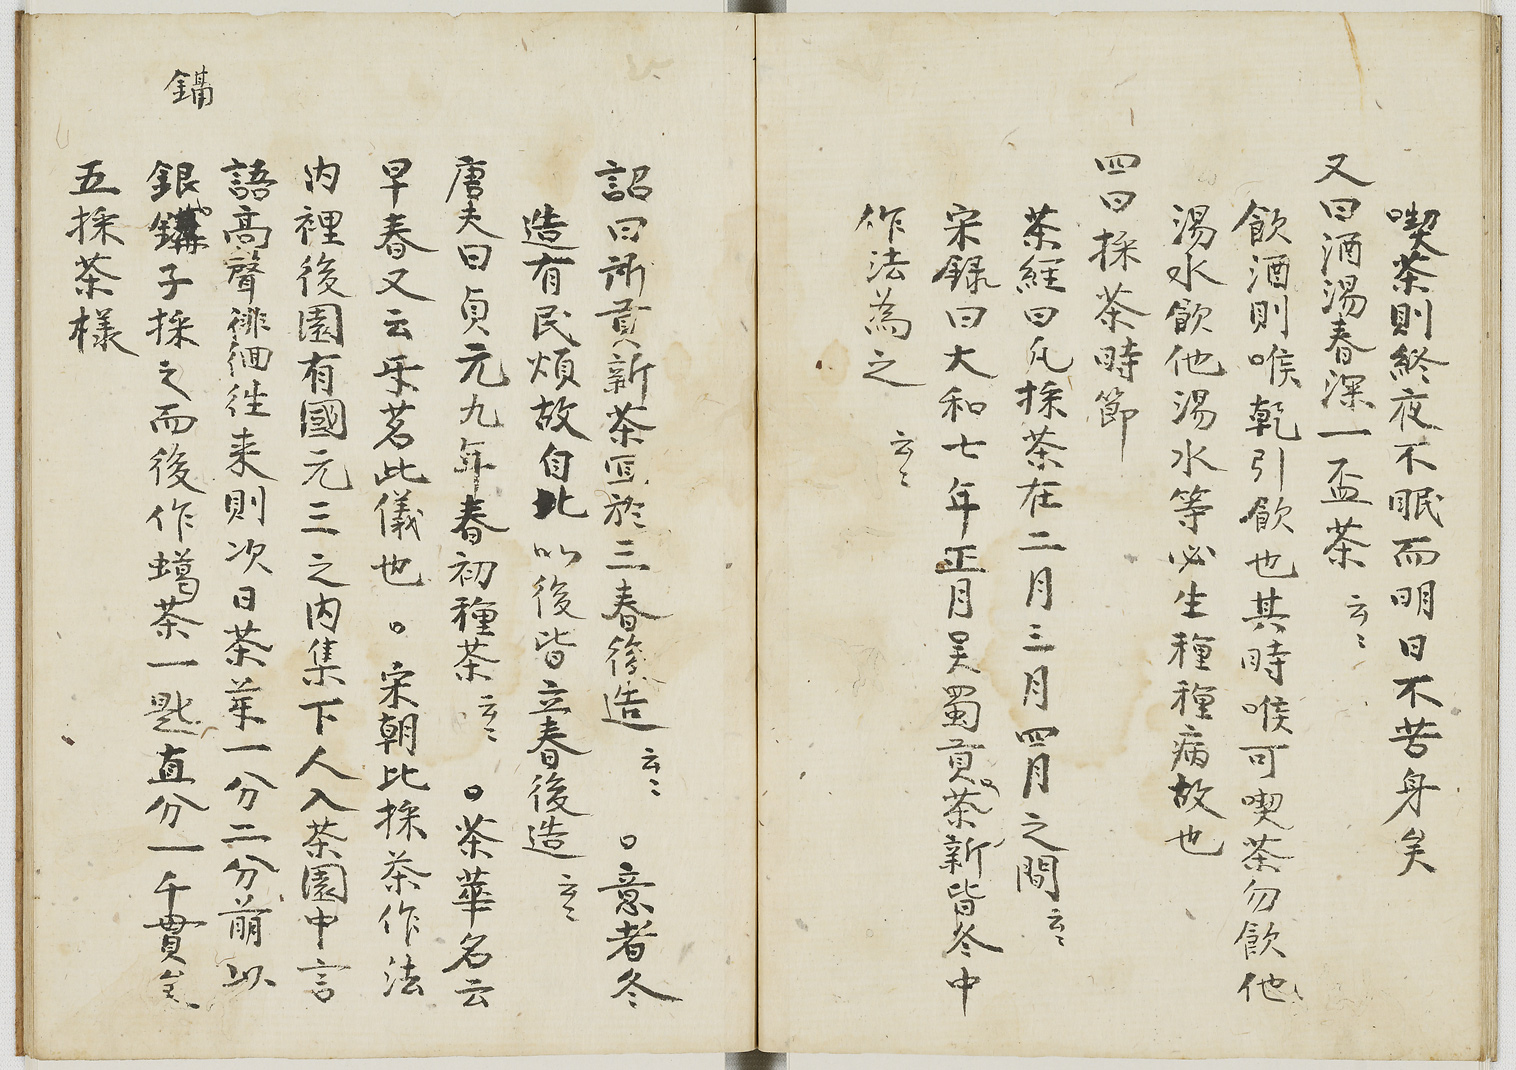 喫茶則終夜不眠而明日不苦身矣
又曰酒湯春深一盃茶云々
飲酒則喉乾引飲也其時喉可喫茶勿飲他
湯水飲他湯水等必生種種病故也
四曰採茶時節
茶經曰凡採茶在二月三月四月之間云々
宋録曰大和七年正月吴蜀貢茶新皆冬中
作法為之云々
詔曰所貢新茶宜於三春後造云々 。意者冬
造有民煩故自此以後皆立春後造云々
唐夫曰貞元九年春初種茶云々 。茶華名云
早春又云牙茗此儀也 。宋朝比採茶作法
内裡後園有國元三之内集下人入茶園中言
語高聲徘徊徃来則次日茶茱一分二分萠以
鏋
銀子採之而後作蝎茶一匙直分一千貫矣
五採茶樣